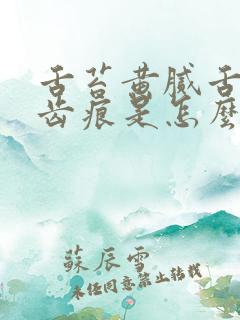 舌苔黄腻舌
齿痕是怎麼
蘇辰雪
未经同意禁止转载